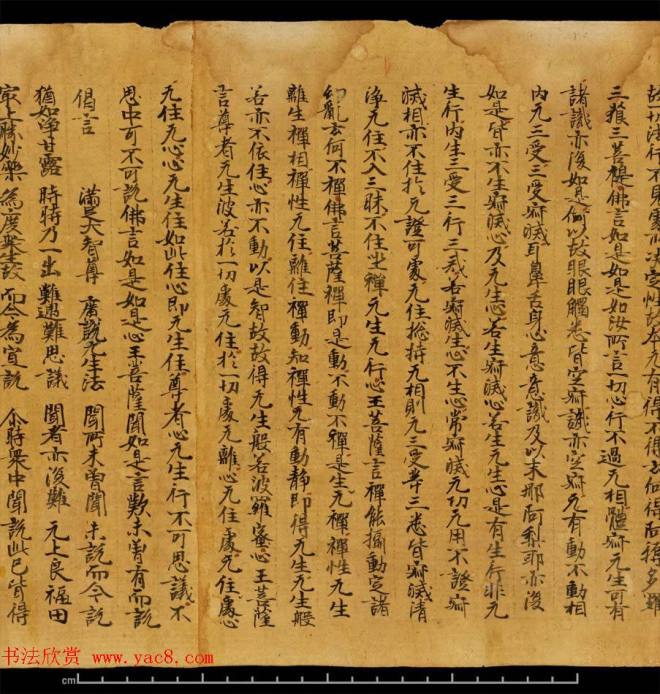 故一切法行不見處所決定性故本无有得不得云何得阿耨多羅
三藐三菩提佛言如是如是如汝所言一切心行不過无相體寂无生可有
諸識亦復如是何以故眼眼觸悉皆空寂識亦空寂无有動不動相
内无三受三受寂滅耳鼻舌身心意意識及以末那阿梨耶亦復
如是皆亦不生寂滅心及无生心若生寂滅心若生无生心是有生行非无
生行内生三受三行三戒若寂滅生心不生心常寂滅无功无用不證寂
滅相亦不住於无證可處无住揔持无相則无三受等三悉皆寂滅清
淨无住不入三昧不住坐禪无生无行心王菩薩言禪能攝動定諸
幻亂云何不禪佛言菩薩禪即是動不動不禪是生无禪禪性无生
離生禪相禪性无住離住禪動知禪性无有動静即得无生无生般
若亦不依住心亦不動以是智故故得无生般若波羅蜜心王菩薩
言尊者无生波若於一切處无住於一切處无離心无住處无住處心
无住无心心无生住如此住心即无生住尊者心无生行不可思議不
思中可不可説佛言如是如是心王菩薩聞如是言歎未曾有而説
偈言 滿足大智尊 廣説无生法 聞所未曾聞 未説而今説
猶如淨甘露 時時乃一出 難遇難思議 聞者亦復難 无上良福田
最上勝妙藥 為度衆生故 而今為宣説 尒時衆中聞説此已皆得
书法欣赏 www.yac8.com
cm